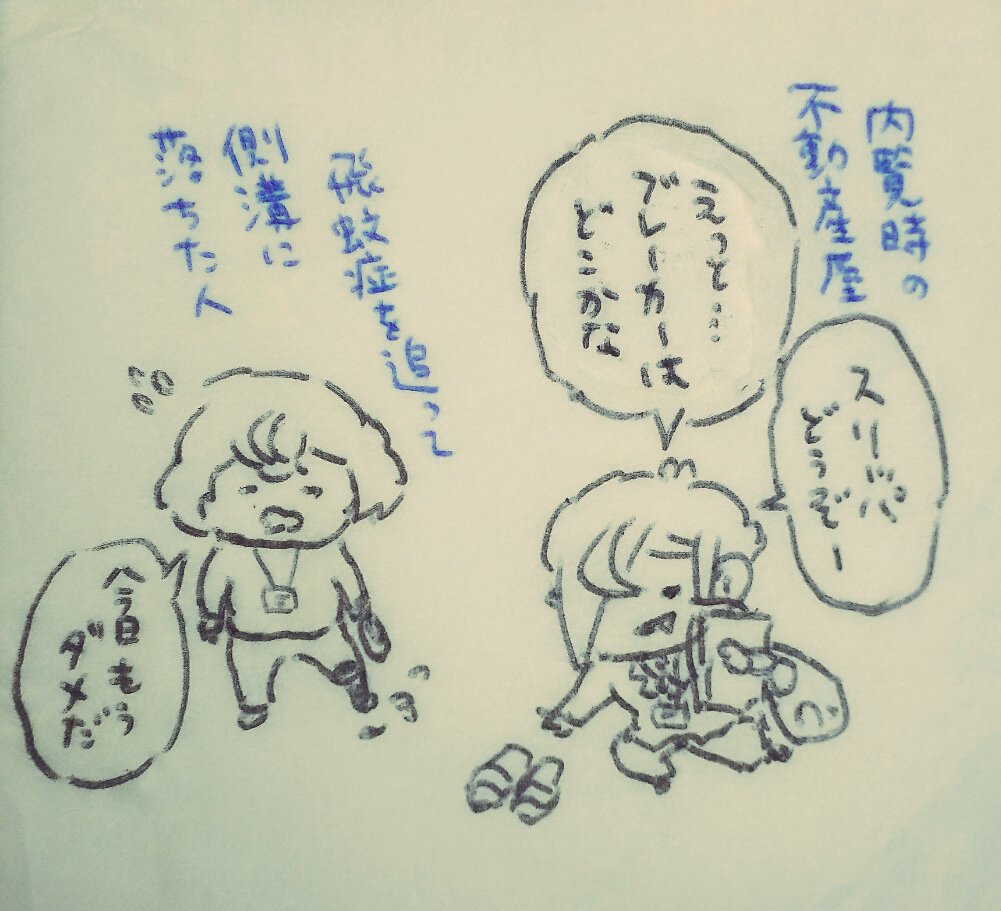 内覧時の
不動産屋
スリッパ
どうぞー
えっと…
ブレーカーは
どこかな
飛蚊症を追って
側溝に
落ちた人
今日もう
ダメだ